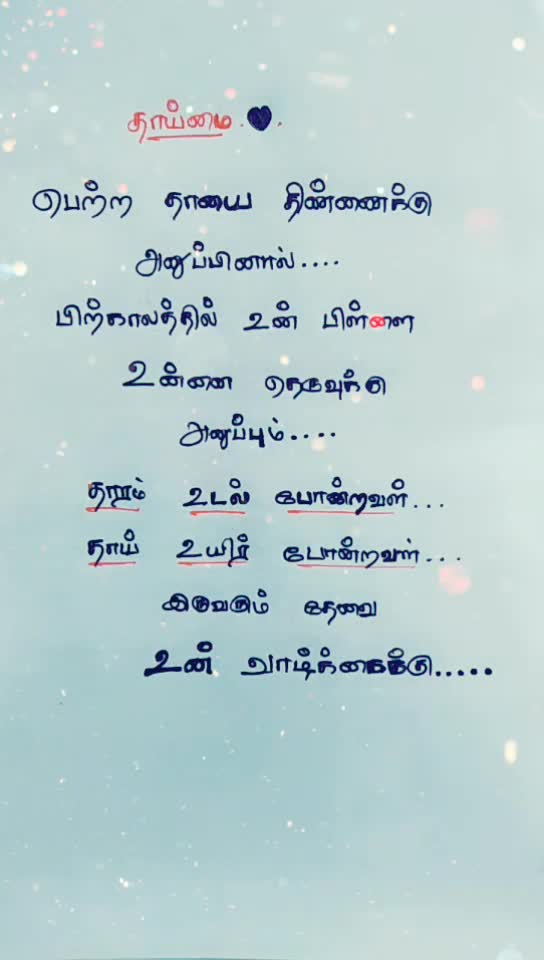 தாய்மை.🖤.
பெற்ற தாயை திண்ணைக்கு
அனுப்பினால்....
பிற்காலத்தில் உன் பிள்ளை
உன்னை தெருவுக்கு
அனுப்பும்....
தாரம் உடல் போன்றவள்...
தாய் உயிர் போன்றவள்...
இருவரும் தேவை
உன் வாழ்க்கைக்கு.....